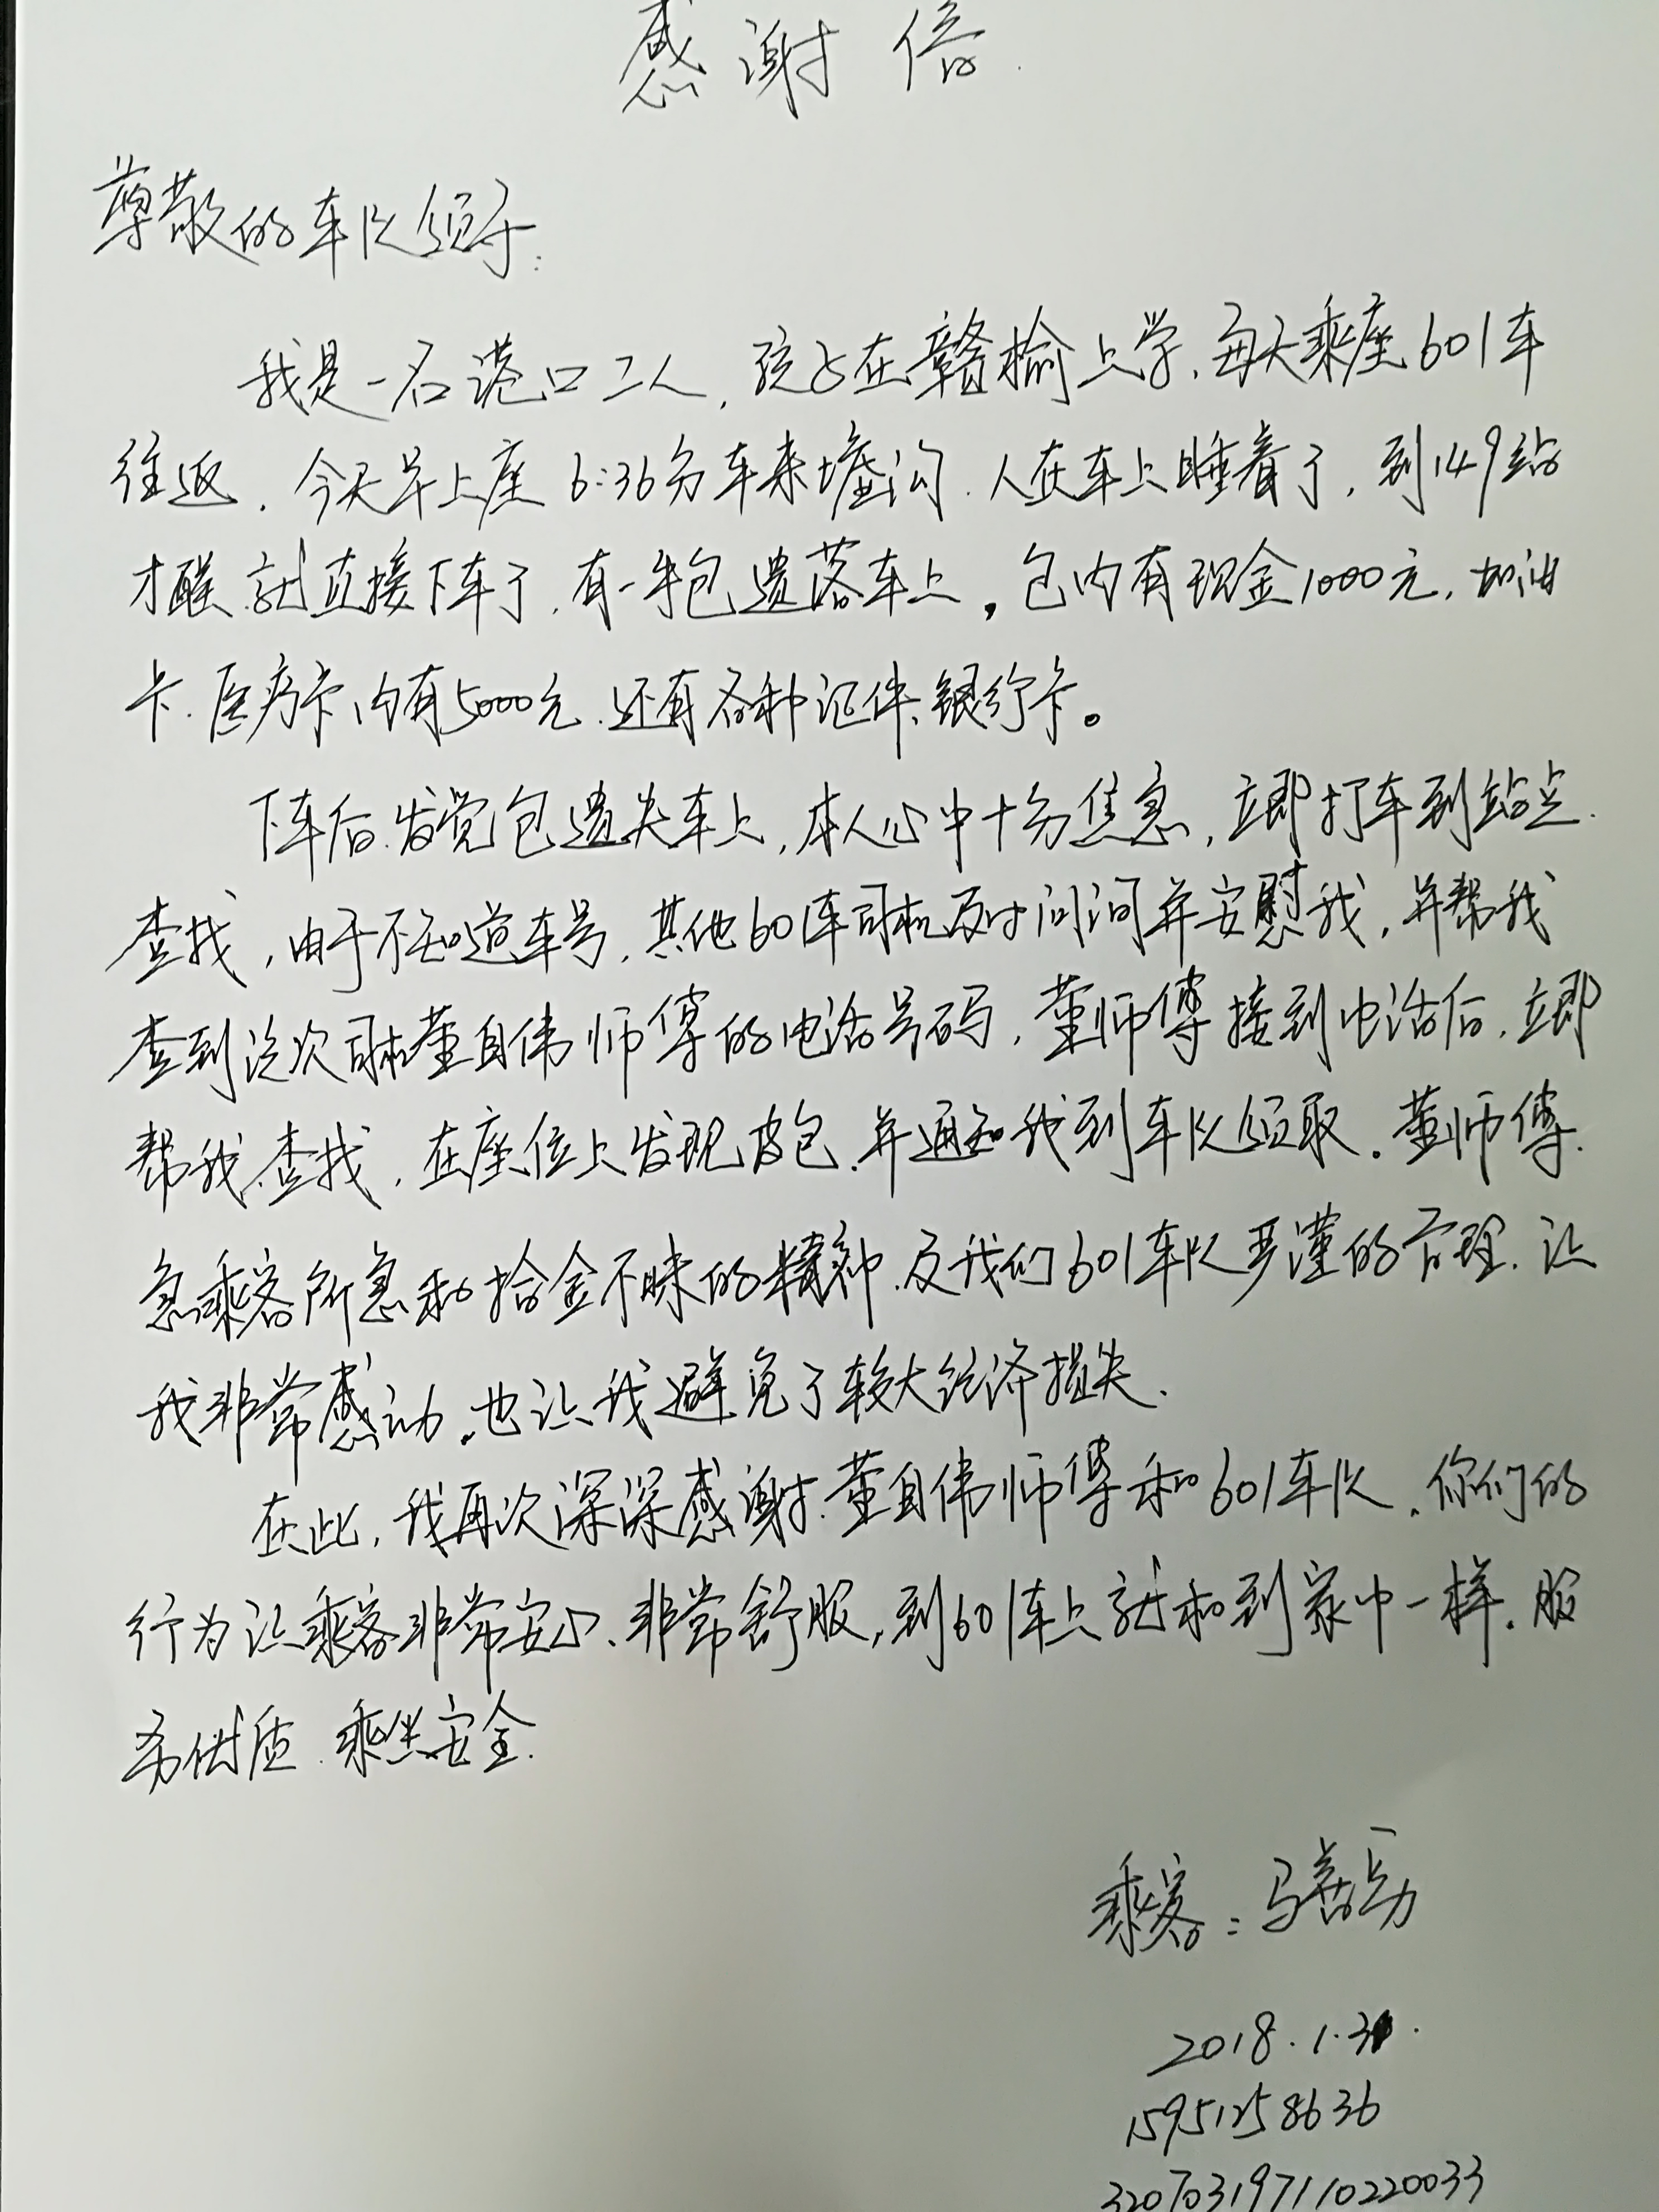 感谢信
尊敬的车队领导:
我是一名港口工人,孩子在赣榆上学,每天乘座601车
往返,今天早上座6:36分车来墟沟,人在车上睡着了,到149站
才醒,就直接下车了,有一手包遗落车上。包内有现金1000元,加油
卡、医疗卡内有5000元,还有各种证件、银行卡。
下车后,发觉包遗失车上,本人心中十分焦急,立即打车到站点
查找,由于不知道车号,其他601车司机及时询问并安慰我,并帮我
查到这次司机董自伟师傅的电话号码,董师傅接到电话后,立即
帮我查找,在座位上发现皮包,并通知我到车队领取。董师傅
急乘客所急和拾金不昧的精神,及我们601车队严谨的管理,让
我非常感动。也让我避免了较大经济损失.
在此,我再次深深感谢董自伟师傅和601车队,你们的
行为让乘客非常安心、非常舒服,到601车上就和到家中一样.服
务优质、乘坐安全.
乘客:马
2018.1.31.
15951258636
320703197110220033